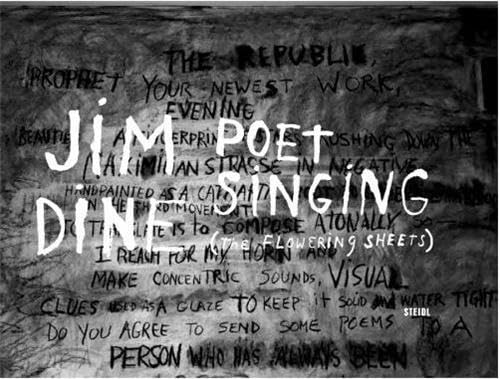 THE REPUBLIK,
PROPHET YOUR NEWEST WORK,
EVENING
RUSHING DOWN THE
MAXIMILIAN STRASSE IN NEGATIVE
HANDPAINTED AS A
IN THE THIRD MOVEMENT
IS to COMPOSE ATONALLY
I REACH FOR MY HORN AND
MAKE CONCENTRIC SOUNDS, VISUAL
CLUES USED AS A GLAZE TO KEEP it SOLID AND WATER TIGHT
DO YOU AGREE TO SEND SOME POEMS TO A
PERSON WHO HAS ALWAYS BEEN
JiM DINE
POEt SINGING
(the FLOWERING SHEETS)
STEIDL